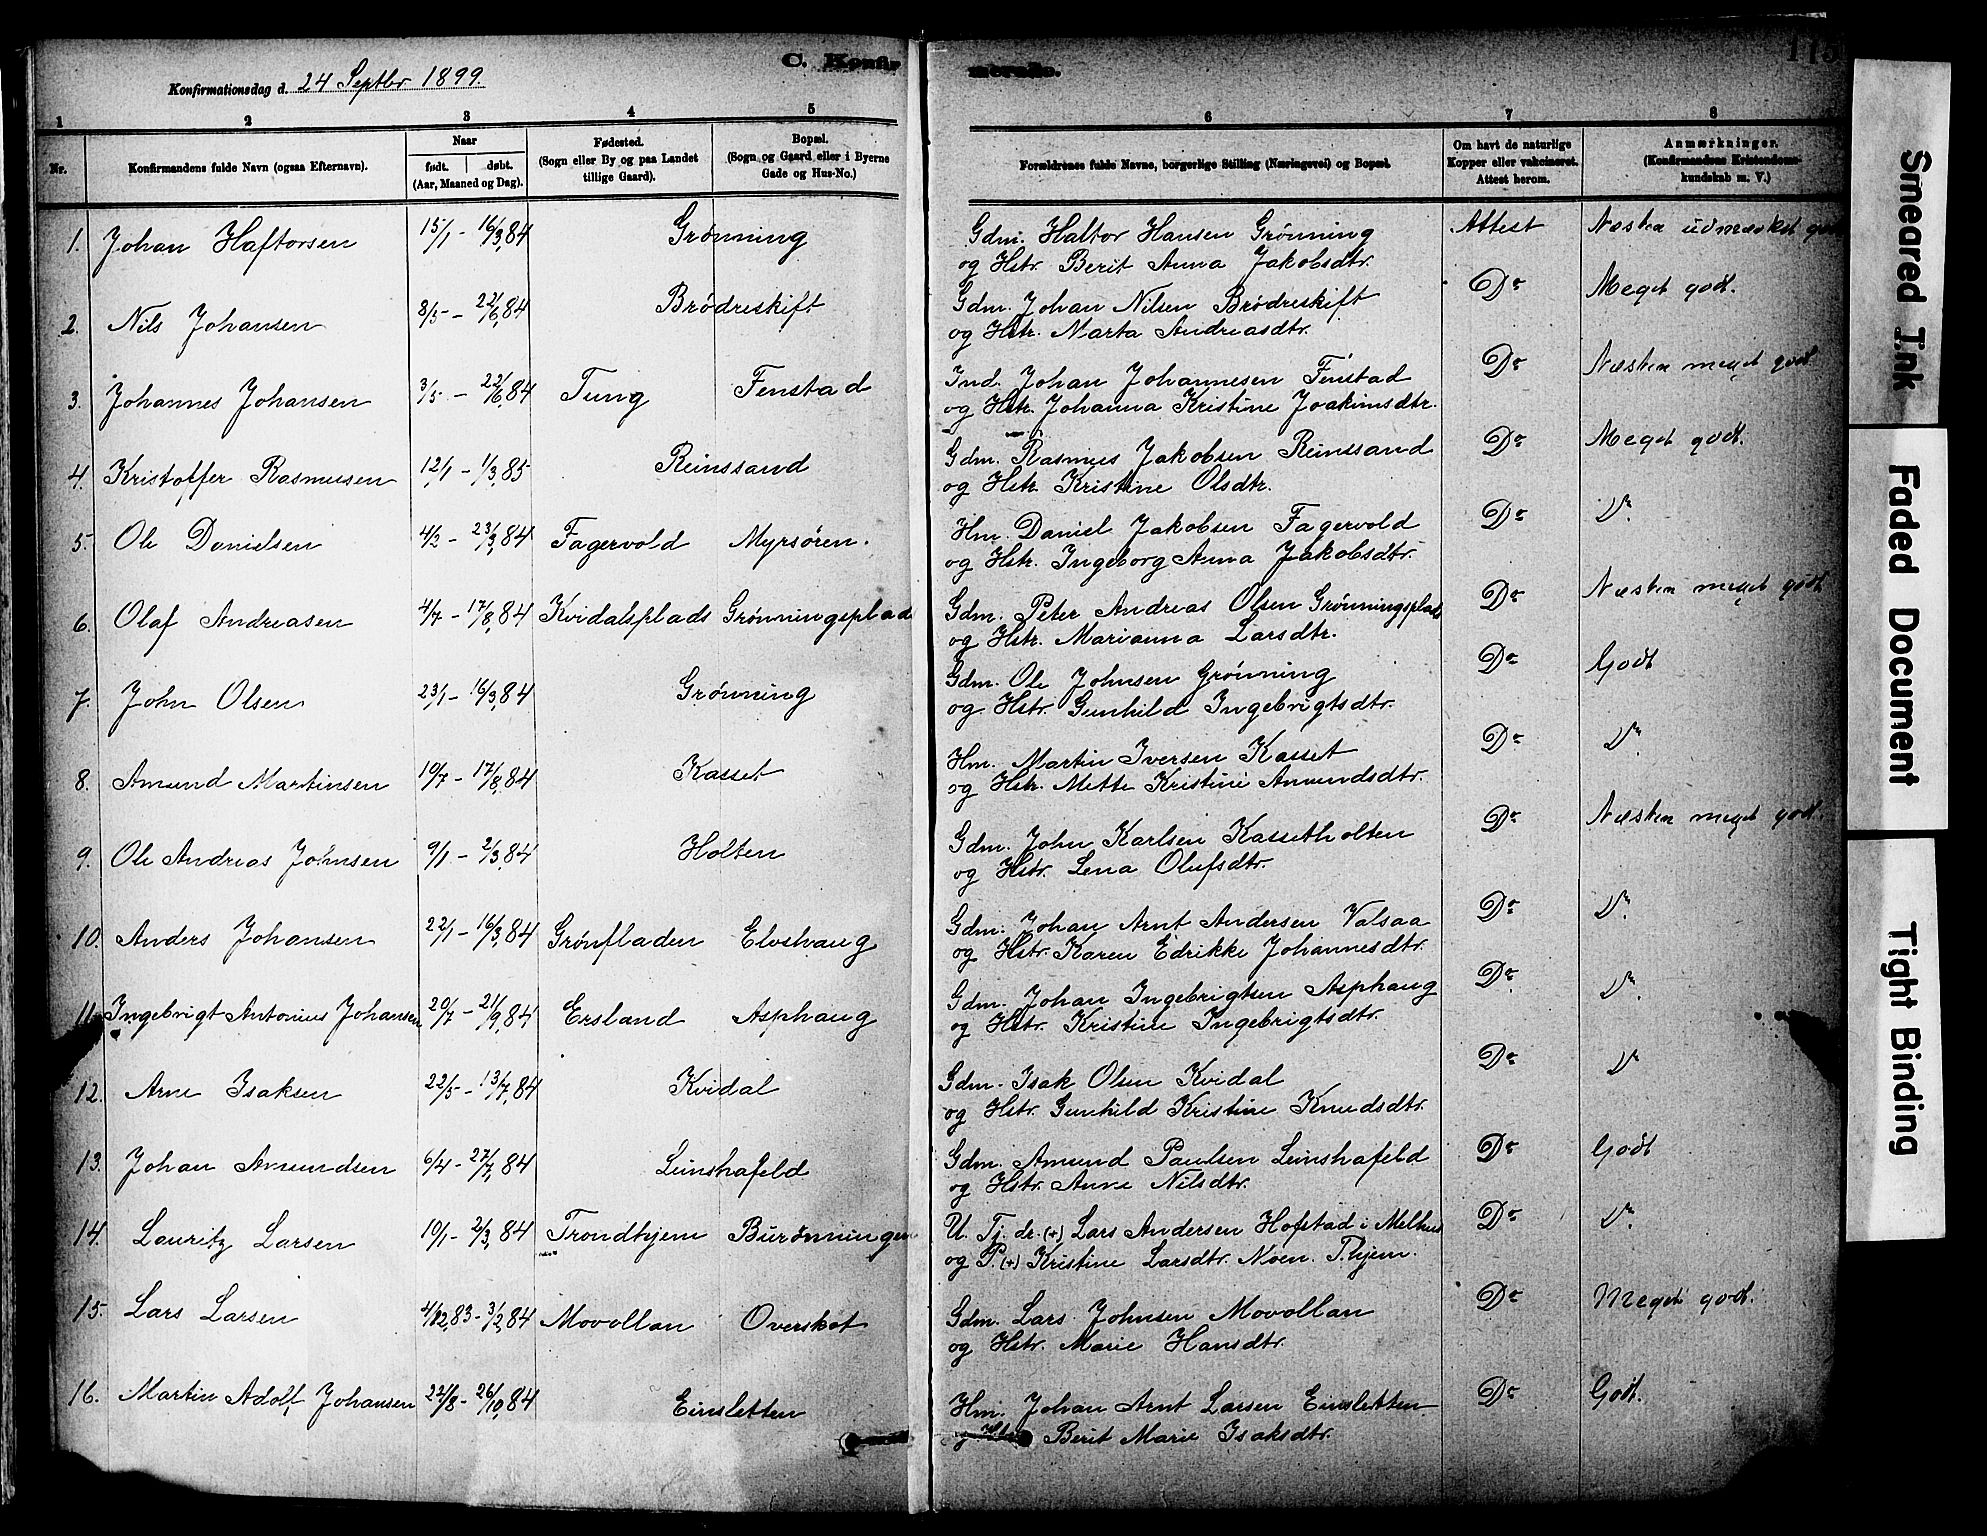 C. Konfir
merede.
115
Konfirmationsdag d. 24 Septbr 1899.
1 2 3 4 5 6 7 8
Nr.
Konfirmandens fulde Navn (ogsaa Efternavn).
Naar
født. døbt.
(Aar, Maaned og Dag).
Fødested.
(Sogn eller By og paa Landet
tillige Gaard).
Bopæl.
(Sogn og Gaard eller i Byerne
Gade og Hus-No.)
Forældrenes fulde Navne, borgerlige Stilling (Næringsvei) og Bopæl.
Om havt de naturlige
Kopper eller vakcineret.
Attest herom.
Anmærkninger.
(Konfirmandens Kristendoms-
kundskab m. V.)
1. Johan Haftorsen 15/1 - 16/3,84 Grønning Gdm. Haltor Hansen Grønning Attest Næsten udmærket godt
og Hstr. Berit Anna Jakobsdtr.
2. Nils Johansen 8/5 - 22/6,84 Brødreskift Gdm. Johan Nilsen Brødreskift Do Meget godt.
og Hstr. Marta Andreasdtr.
3. Johannes Johansen 3/5 - 22/6,84 Tung Fenstad Ind. Johan Johannesen Fenstad Do Næsten meget godt
og Hstr. Johanna Kristine Joakimsdtr.
4. Kristoffer Rasmusen 12/1 - 1/3,85 Reinssand Gdm. Rasmus Jakobsen Reinssand Do Meget godt.
og Hstr. Kristine Olsdtr.
5. Ole Danielsen 4/2 - 23/3,84 Fagervold Myrsøren. Hm. Daniel Jakobsen Fagervold Do Do
og Hstr. Ingeborg Anna Jakobsdtr.
6. Olaf Andreasen 4/7 - 17/8,84 Kvidalsplads Grønningsplads Gdm. Peter Andreas Olsen Grønningsplads Do Næsten meget godt
og Hstr. Marianna Larsdtr.
7. John Olsen 23/1 - 16/3,84 Grønning Gdm. Ole Johnsen Grønning Do Godt
og Hstr. Gunhild Ingebrigtsdtr.
8. Amund Martinsen 10/7 - 17/8,84 Kasset Hm. Martin Iversen Kasset Do Do
og Hstr. Mette Kristine Amundsdtr.
9. Ole Andreas Johnsen 9/1 - 2/3,84 Holten Gdm. John Karlsen Kassetholten Do Næsten meget godt.
og Hstr. Lena Olufsdtr.
10. Anders Johansen 22/1 - 16/3,84 Grønfladen Elvshaug Gdm. Johan Arnt Andersen Valsaa Do Do
og Hstr. Karen Edrikke Johannesdtr.
11. Ingebrigt Antonius Johansen 20/7 - 21/9,84 Ersland Asphaug Gdm. Johan Ingebrigtsen Asphaug Do Do
og Hstr. Kristine Ingebrigtsdtr.
12. Arne Isaksen 22/5 - 13/7,84 Kvidal Gdm. Isak Olsen Kvidal Do Do
og Hstr. Gunhild Kristine Knudsdtr.
13. Johan Amundsen 6/4 - 27/7,84 Leinshafeld Gdm. Amund Paulsen Leinshafeld Do Godt
og Hstr. Anne Nilsdtr.
14. Lauritz Larsen 10/1 - 2/3,84 Trondhjem Burønningen U. Tj. dr. (+) Lars Andersen Hofstad i Melhus Do Do
og P. (+) Kristine Larsdtr. Noen. T.hjem.
15. Lars Larsen 4/12,83 - 3/2,84 Movollan Overskot Gdm. Lars Johnsen Movollan Do Meget godt.
og Hstr. Marie Hansdtr.
16. Martin Adolf Johansen 22/8 - 26/10,84 Einsletten Hm. Johan Arnt Larsen Einsletten Do Godt.
og Hstr. Berit Marie Isaksdtr.
Smeared Ink
Faded Document
Tight Binding